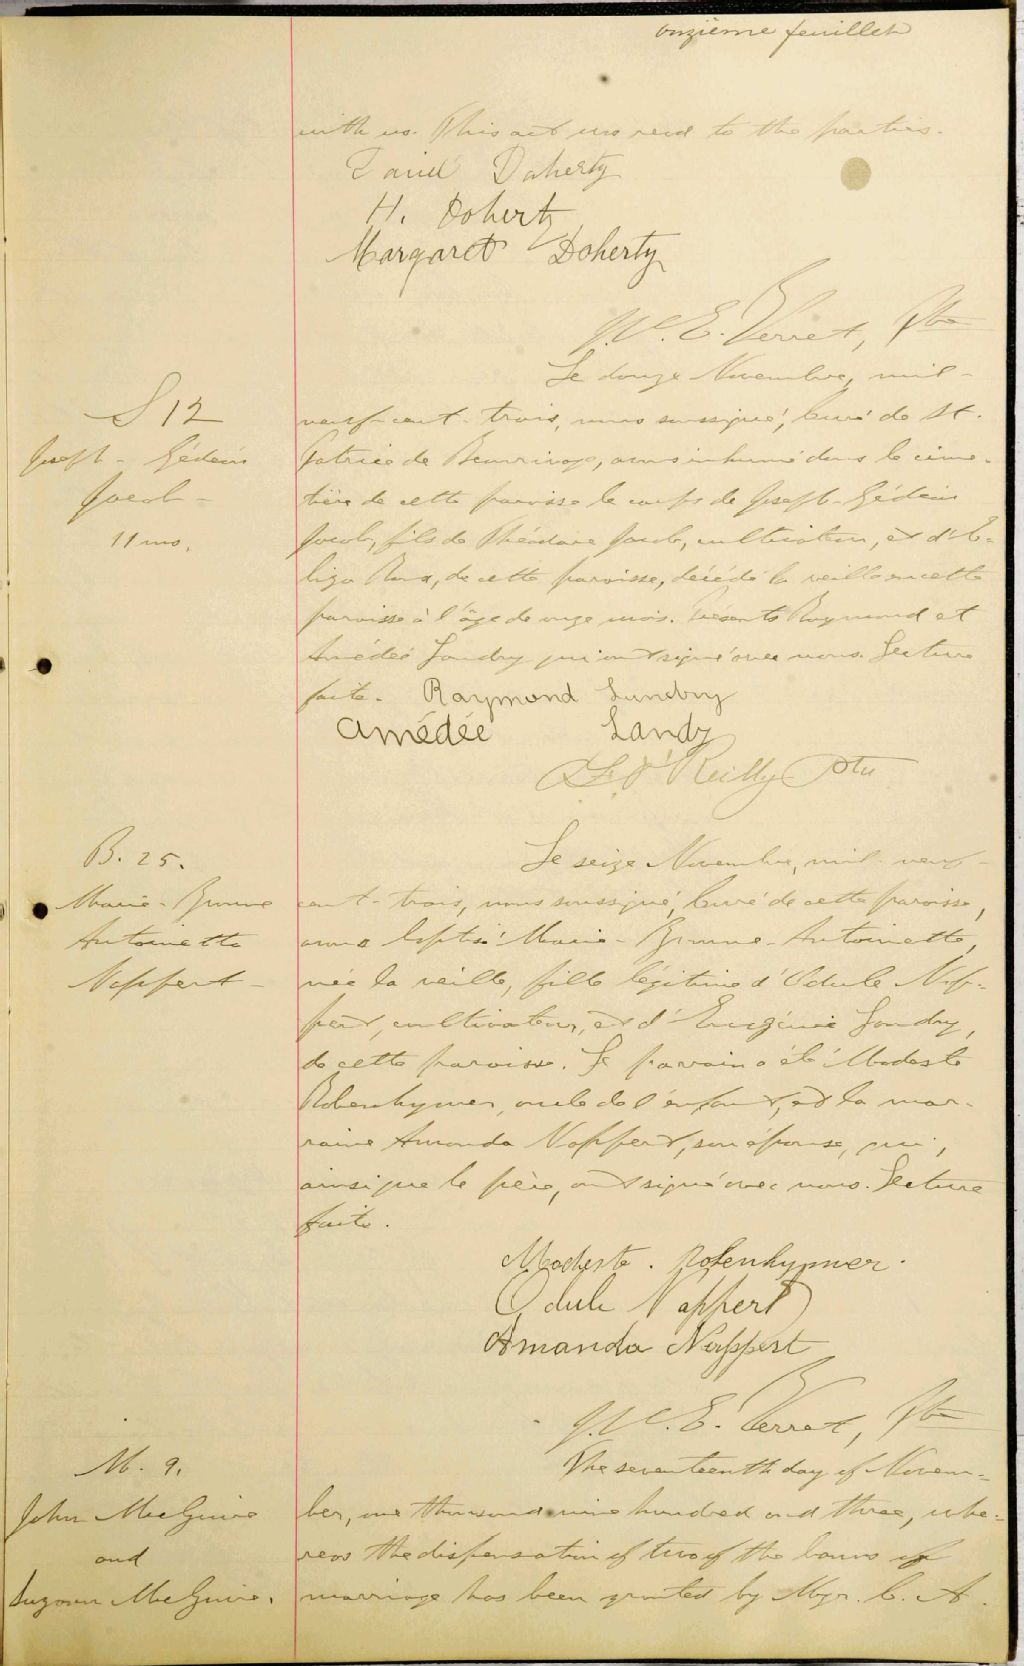 onzième feuillet
with us. This act was read to the parties.
David Doherty
H. Doherty
Margaret Doherty
J. E. Verret, Ptre
Le douze Novembre, mil-
S 12
neuf-cent-trois, nous soussigné, Curé de St.
Joseph-Gédéon
Patrice de Beaurivage, avons inhumé dans le cime-
Jacob-
tière de cette paroisse le corps de Joseph-Gédéon
11 mo.
Jacob, fils de Théodore Jacob, cultivateur, et d'E-
liza Ross, de cette paroisse, décédé la veille en cette
paroisse à l'âge de onze mois. Présents Raymond et
Amédée Landry qui ont signé avec nous. Lecture
faite. Raymond Lundry
Amédée Landy
O'Reilly Ptre
B. 25.
Le seize Novembre, mil-neuf-
Marie-Brunne
cent-trois, nous soussigné, Curé de cette paroisse,
Antoinette
avons baptisé Marie-Brunne-Antoinette,
Nappert-
née la veille, fille légitime d'Odule Nap-
pert, cultivateur, et d'Eugénie Landry,
de cette paroisse. Le parrain a été Modeste
Rotenhymer, oncle de l'enfant, et la mar-
raine Amanda Nappert, son épouse, qui,
ainsi que le père, ont signé avec nous. Lecture
faite.
Modeste. Rotenhymer.
Odule Nappert
Amanda Nappert
J. E. Verret, Ptre
M. 9.
The seventeenth day of Novem-
John MacGuire
ber, one thousand nine hundred and three, whe-
and
reas the dispensation of two of the banns of
Suzann MacGuire.
marriage has been granted by Mgr. C. A.